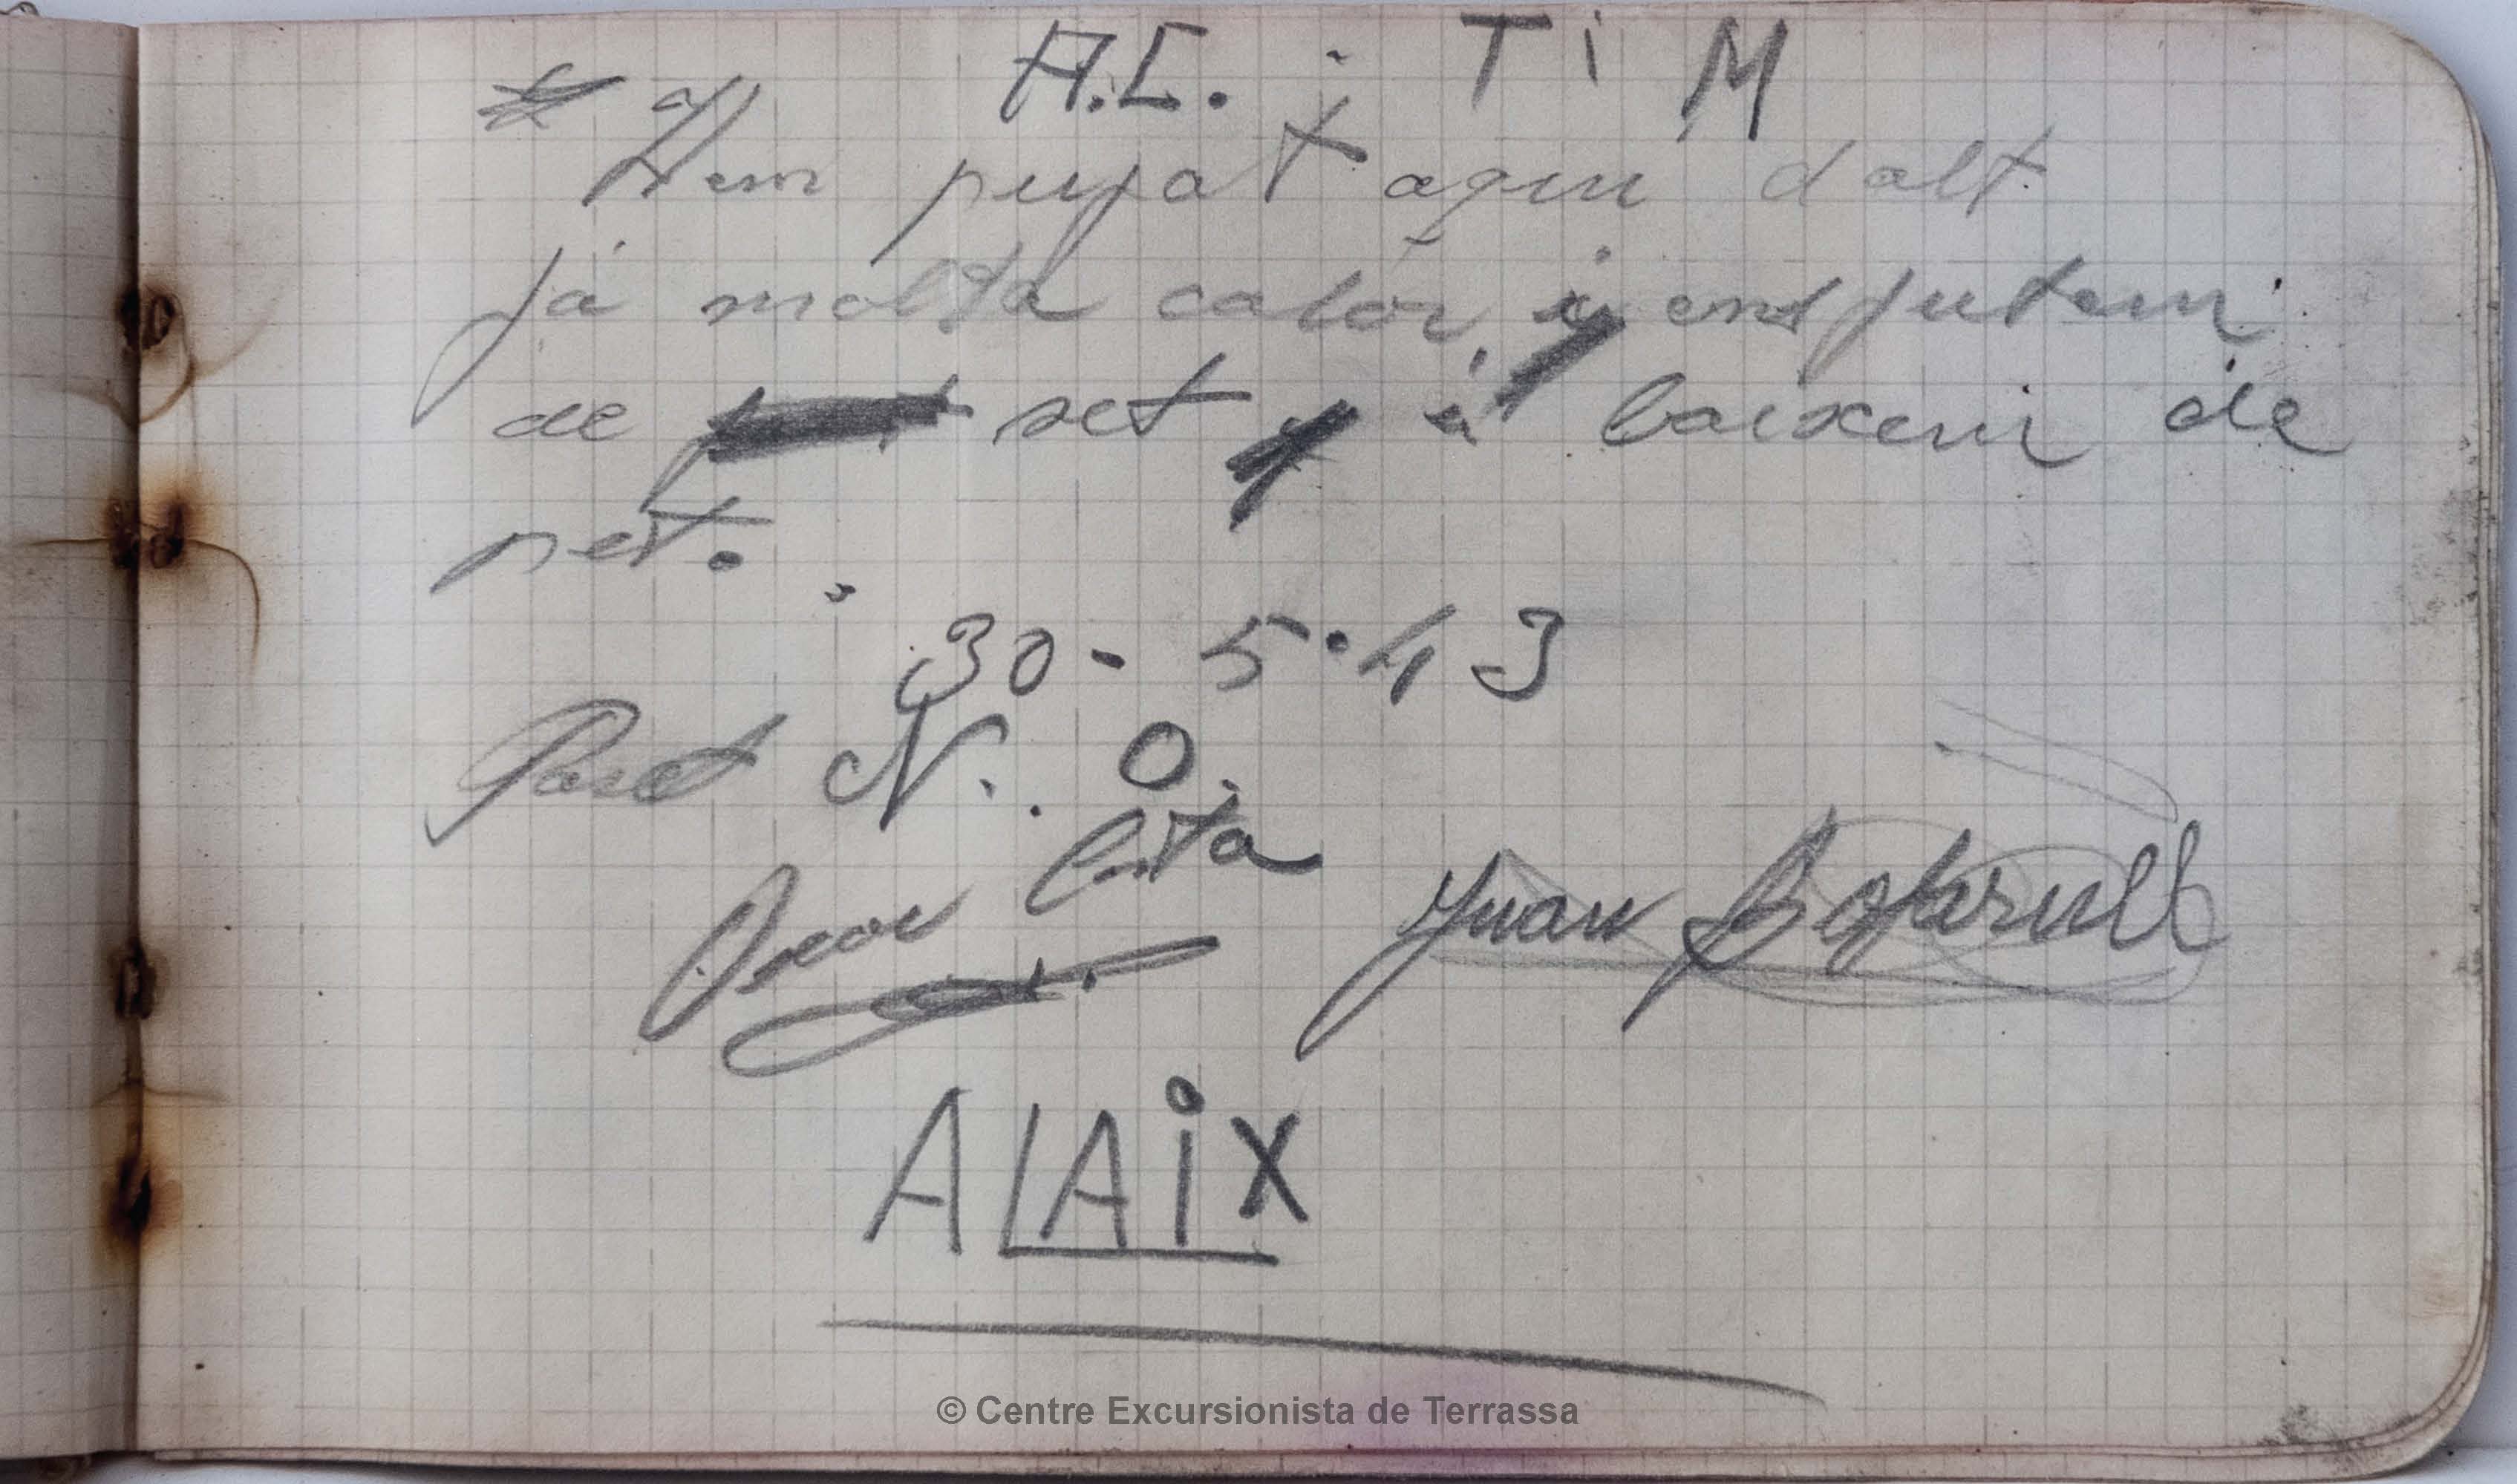 A.E. T i M
Hem pujat aqui dalt
fá molta calór, i ens futem
de set i baixem de
pet.
30-5-43
N. O.
Juan Bofarull
ALAiX
© Centre Excursionista de Terrassa